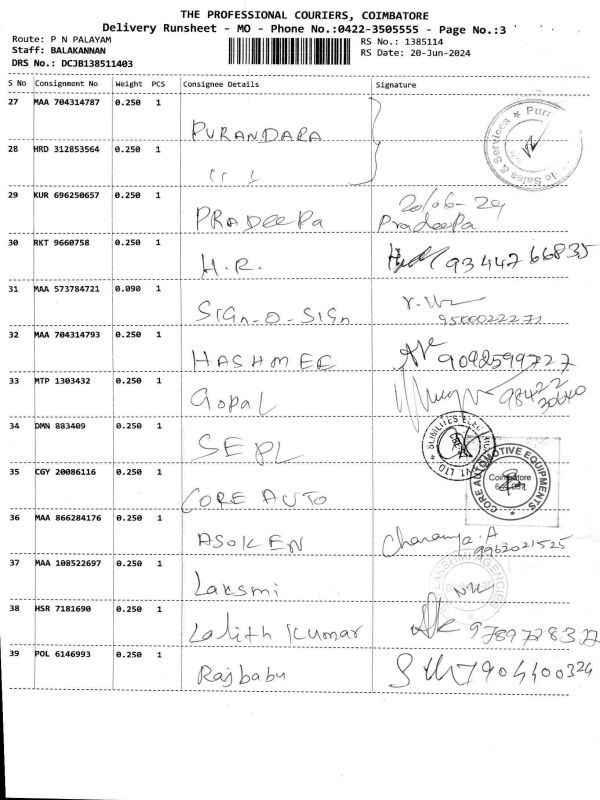 THE PROFESSIONAL COURIERS, COIMBATORE
Delivery Runsheet - MO - Phone No.:0422-3505555 - Page No.:3
Route: P N PALAYAM RS No.: 1385114
Staff: BALAKANNAN RS Date: 20-Jun-2024
DRS No.: DCJB138511403
S No Consignment No Weight PCS Consignee Details Signature
27 MAA 704314787 0.250 1 PURANDARA
28 HRD 312853564 0.250 1
29 KUR 696250657 0.250 1 PRADEEPa 20/06-24 Pradeepa
30 RKT 9660758 0.250 1 H.R. 9344266835
31 MAA 573784721 0.090 1 SIGn-O-SIGn
32 MAA 704314793 0.250 1 HASHMEE 9092599727
33 MTP 1303432 0.250 1 Gopal 98422 30640
34 DMN 883409 0.250 1 SEPL
35 CGY 20086116 0.250 1 CORE AUTO
CORE AUTOMOTIVE EQUIPMENTS
Coimbatore
36 MAA 866284176 0.250 1 ASOKEN Charanya.A 9962021525
37 MAA 108522697 0.250 1 Laksmi
38 HSR 7181690 0.250 1 Lalith Kumar
39 POL 6146993 0.250 1 Rajbabu